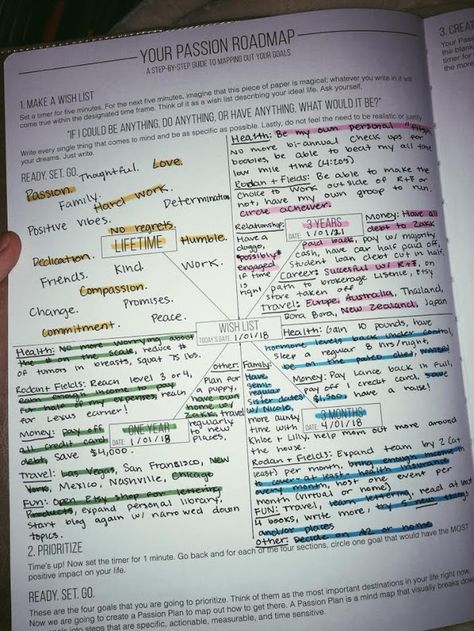 YOUR PASSION ROADMAP
A STEP-BY-STEP GUIDE TO MAPPING OUT YOUR GOALS
1. MAKE A WISH LIST
Set a timer for five minutes. For the next five minutes, imagine that this piece of paper is magical; whatever you write in it will
come true within the designated time frame. Think of it as a wish list describing your ideal life. Ask yourself,
"IF I COULD BE ANYTHING, DO ANYTHING, OR HAVE ANYTHING, WHAT WOULD IT BE?"
Write every single thing that comes to mind and be as specific as possible. Lastly, do not feel the need to be realistic or justify
your dreams. Just write.
READY. SET. GO.
Thoughtful. Love.
Passion.
Family. Hard work.
Determination
Positive vibes.
No regrets
LIFETIME
Humble.
Dedication.
Friends. Kind Work.
Compassion.
Change. Promises.
Peace.
Commitment.
Health: Be my own personal
No more bi-annual check ups for
boobies, be able to beat my all time
low mile time (4:05)
Rodan + Fields: Be able to make the
choice to work outside of R+F or
not, have my own group to run.
circle achiever.
Relationship:
Have a
doggo,
possibly
engaged
if time
is right
3 YEARS
DATE: 1/01/21
Money: Have all
debt to Zakk
paid back, pay w/ majority
cash, have car half paid off,
student loan debt cut in half.
Career: Successful w/ R+F, on
path to brokerage License, Etsy
store taken off
Travel: Europe, Australia, Thailand,
Bora Bora, New Zealand, Japan
WISH LIST
TODAY'S DATE: 1/01/18
Health: No more worrying about
the # on the scale, reduce #
of tumors in breasts, squat 75 lbs.
Rodan + Fields: Reach level 3 or 4,
earn enough income to pay
for half my expenses, reach
for Lexus earner!
Money: Pay off
all credit card
debt. Save
$4,000.
ONE YEAR
DATE: 1/01/18
Plan for
a puppy,
have own
home w/
Zakk, travel
regularly
to new
places.
Travel: Las Vegas, San Francisco, New
York, Mexico, Nashville, Chicago
FUN: Open Etsy shop for lettering
Products, expand personal library,
start blog again w/ narrowed down
topics.
Health: Gain 10 pounds, have
hormone levels back under control,
Sleep a regular 8 hrs/night,
be on the paleo diet, WATER!
Family:
Have
semi-
regular
Sister dates
w/ Nicole,
more quality
time with
Khloe + Lilly, help mom out more around
the house.
Money: Pay Lance back in full,
pay off 1 credit card, save
$1,500, have a raise!
3 MONTHS
DATE: 4/01/18
Rodan + Fields: Expand team by 2 (at
least) per month, bring enough income
to cover at least health insurance
every month, host one event per
month (virtual or home)
FUN: Travel, lettering, read at least
4 books, write more, try
and/or places
Other: Decide on A2 or home
2. PRIORITIZE
Time's up! Now set the timer for 1 minute. Go back and for each of the four sections, circle one goal that would have the MOST
positive impact on your life.
READY. SET. GO.
These are the four goals that you are going to prioritize. Think of them as the most important destinations in your life right now.
Now we are going to create a Passion Plan to map out how to get there. A Passion Plan is a mind map that visually breaks down
goals into steps that are specific, actionable, measurable, and time sensitive.
3. CREAT